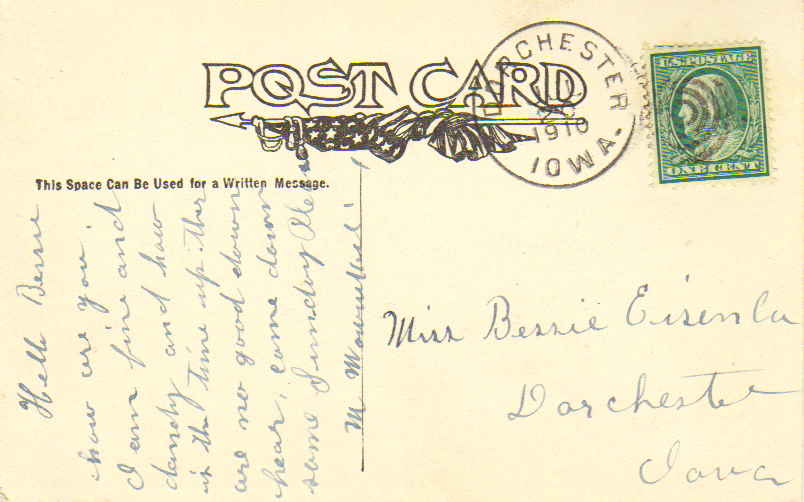 POST CARD
DORCHESTER
1910
IOWA.
U.S. POSTAGE
ONE CENT
This Space Can Be Used for a Written Message.
Hello Bessie
how are you.
I am fine and
dandy and how
is the time up ther
are no good down
hear, come down
some Sunday
M
Miss Bessie Eisenla
Dorchester
Iowa